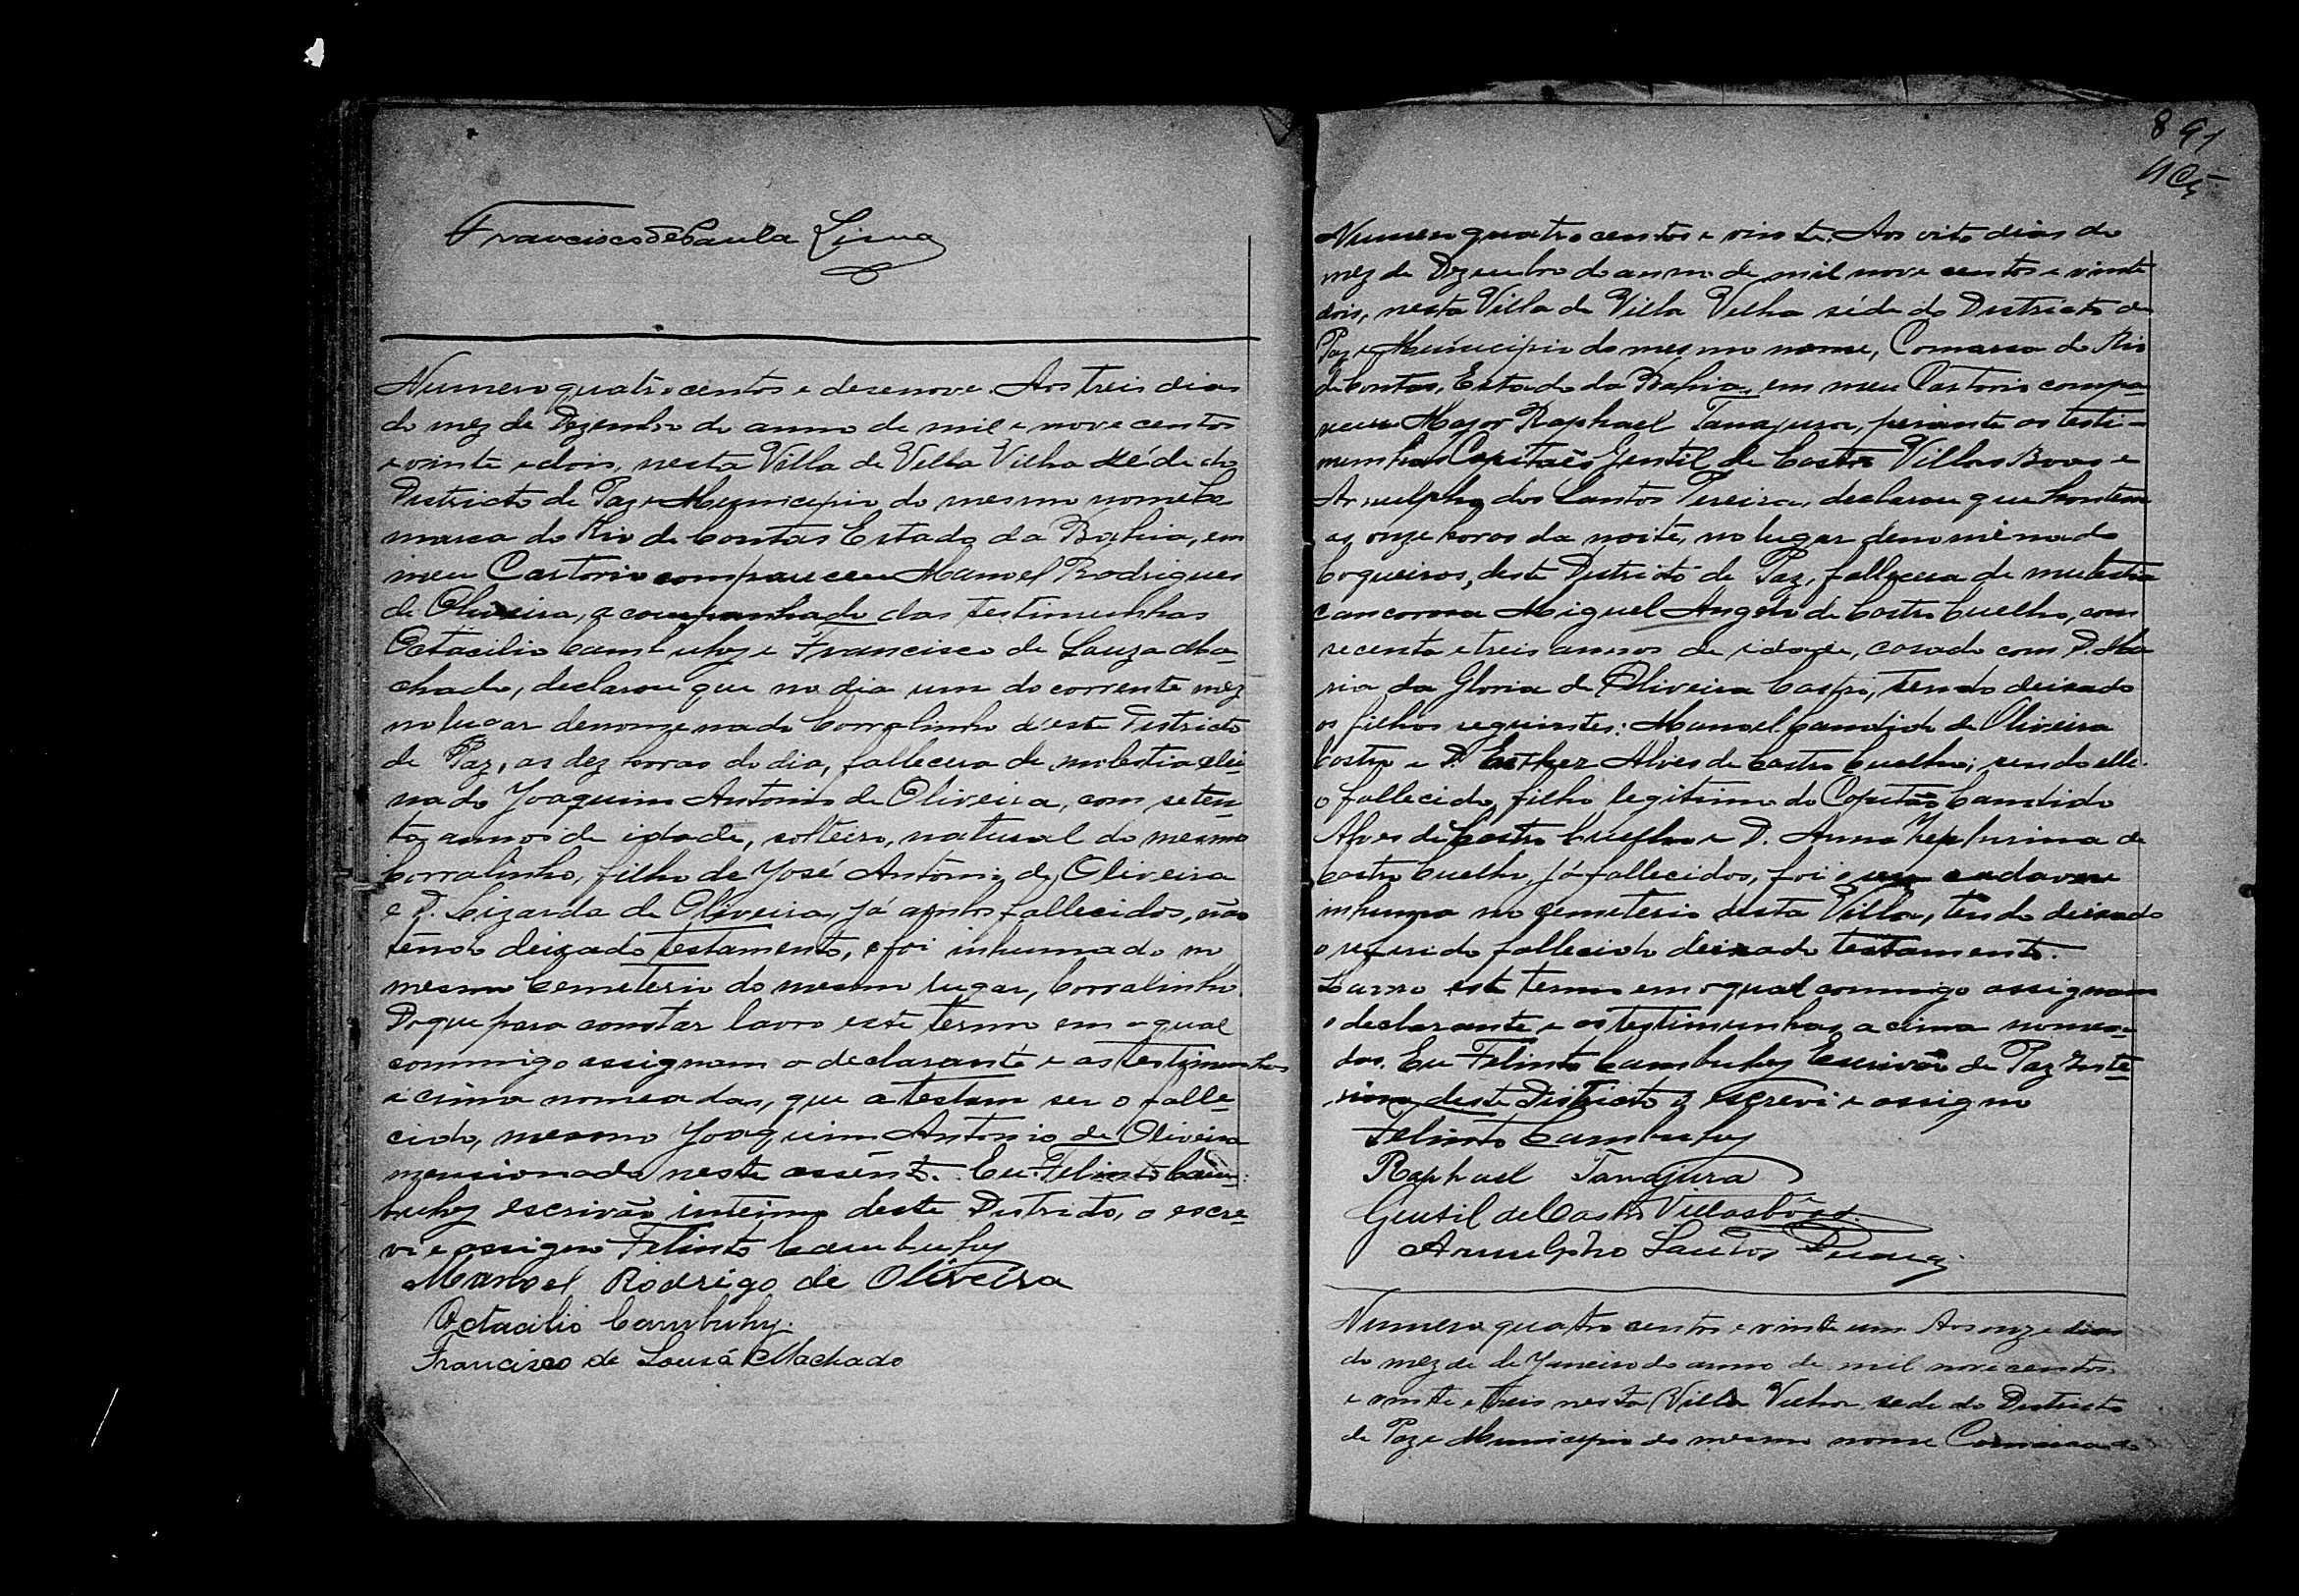 Francisco de Paula Lima
Numero quatrocentos e desenove. Aos treis dias
do mez de Dezembro do anno de mil e nove centos
e vinte e dois, nesta Villa de Villa Velha séde do
Districto de Paz e Municipio do mesmo nome Co
marca do Rio de Contas Estado da Bahia, em
meu Cartorio compareceu Manoel Rodrigues
de Oliveira, acompanhado das testimunhas
Octacilio Cambuhy e Francisco de Souza Ma-
chado, declarou que no dia um do corrente mez
no lugar denomenado Corralinho d'este Districto
de Paz, as dez horas do dia, fallecera de molestia
nado Joaquim Antonio de Oliveira, com seten-
ta annos de idade, solteiro, natural do mesmo
Corralinho, filho de José Antonio de Oliveira
e D. Lizarda de Oliveira, já ambos fallecidos, não
tendo deixado testamento, e foi inhumado no
mesmo Cemeterio do mesmo lugar, Corralinho.
Do que para constar lavro este termo em o qual
commigo assignam o declarante e as testimunhas
acima nomeadas, que atestam ser o falle-
cido, mesmo Joaquim Antonio de Oliveira
mensionado neste assento. Eu Felinto Cam-
buhy escrivão interino deste Districto, o escre-
vi e assigno Felinto Cambuhy
Manoel Rodrigo de Oliveira
Octacilio Cambuhy.
Francisco de Sousa Machado
891
Numero quatro centos e vinte. Aos oito dias do
mez de Dezembro do anno de mil nove centos e vinte
dois, nesta Villa de Villa Velha séde do Districto de
Paz e Municipio do mesmo nome, Comarca do Rio
de Contas, Estado da Bahia, em meu Cartorio compa-
receu Major Raphael Tanajura, perante as testi-
munhas Capitaẽs Gentil de Castro Villas Boas e
Arnulpho dos Santos Pereira, declarou que hontem
as onze horas da noite, no lugar denominado
Coqueiros, deste Districto de Paz, fallecera de molestia
cancorosa Miguel Angelo de Castro Cuelho, com
secenta e treis annos de idade, casado com D. Ma
ria da Gloria de Oliveira Castro, tendo deixado
os filhos seguintes: Manoel Candido de Oliveira
Castro e D. Esther Alves de Castro Cuelho, sendo elle
o fallecido, filho legitimo do Capitão Candido
Alves de Castro Cuelho e D. Anna Zepherina de
Castro Cuelho, já fallecidos, foi o seu cadaver
inhumado no cemeterio desta Villa, tendo deixado
o referido fallecido deixado testamento.
Lavro este termo em o qual commigo assignam
o declarante e as testimunhas acima nomea-
das. Eu Felinto Cambuhy Escrivão de Paz Inte-
rino deste Districto o escrevi e assigno
Felinto Cambuhy
Raphael Tanajura
Gentil de Castro Villasbôas.
Arnulpho Santos Pereira.
Numero quatro centos e vinte um Aos onze dias
do mez de de Janeiro do anno de mil nove centos
e vinte e treis nesta Villa Velha sede do Districto
de Paz e Municipio do mesmo nome Comarca do